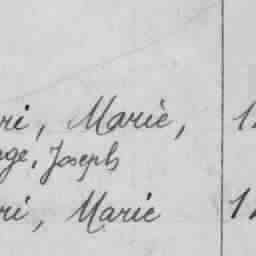 ri, Marie, 1
ge, Joseph
ri, Marie 1